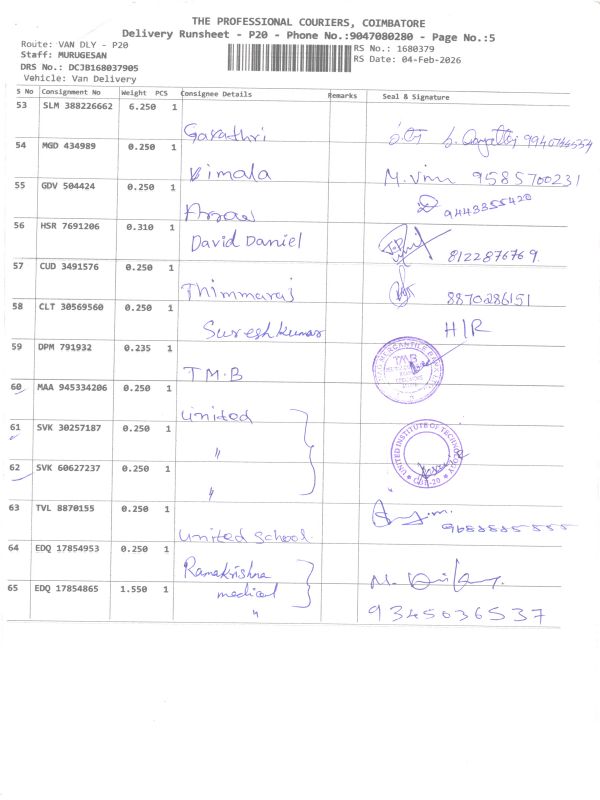 THE PROFESSIONAL COURIERS, COIMBATORE
Delivery Runsheet - P20 - Phone No.:9047080280 - Page No.:5
Route: VAN DLY - P20
Staff: MURUGESAN
DRS No.: DCJB168037905
Vehicle: Van Delivery
RS No.: 1680379
RS Date: 04-Feb-2026
S No Consignment No Weight PCS Consignee Details Remarks Seal & Signature
53 SLM 388226662 6.250 1
Gayathri 9940766554
54 MGD 434989 0.250 1
Vimala M. Vim 9585700231
55 GDV 504424 0.250 1
9443355420
56 HSR 7691206 0.310 1
David Daniel 8122876769.
57 CUD 3491576 0.250 1
Thimmaraj 8870286151
58 CLT 30569560 0.250 1
Sureshkumar H/R
59 DPM 791932 0.235 1
T.M.B TMB
60 MAA 945334206 0.250 1
United
61 SVK 30257187 0.250 1
〃
UNITED INSTITUTE OF TECHNOLOGY
CBE-20
62 SVK 60627237 0.250 1
〃
63 TVL 8870155 0.250 1
United School.
64 EDQ 17854953 0.250 1
Ramakrishna
65 EDQ 17854865 1.550 1
medical
〃 9345036537